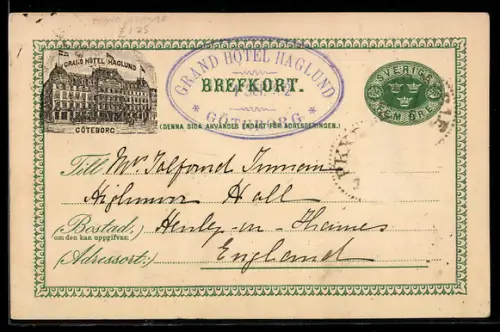 £175
GRAND HÔTEL HAGLUND
GÖTEBORG
GRAND HOTEL HAGLUND
GÖTEBORG
BREFKORT.
(DENNA SIDA ANVÄNDES ENDAST FÖR ADRESSERINGEN.)
SVERIGE
FEM ÖRE
Till Mr
Hall
Bostad, Henley-on-Thames
(om den kan uppgifvas)
(Adressort:) England